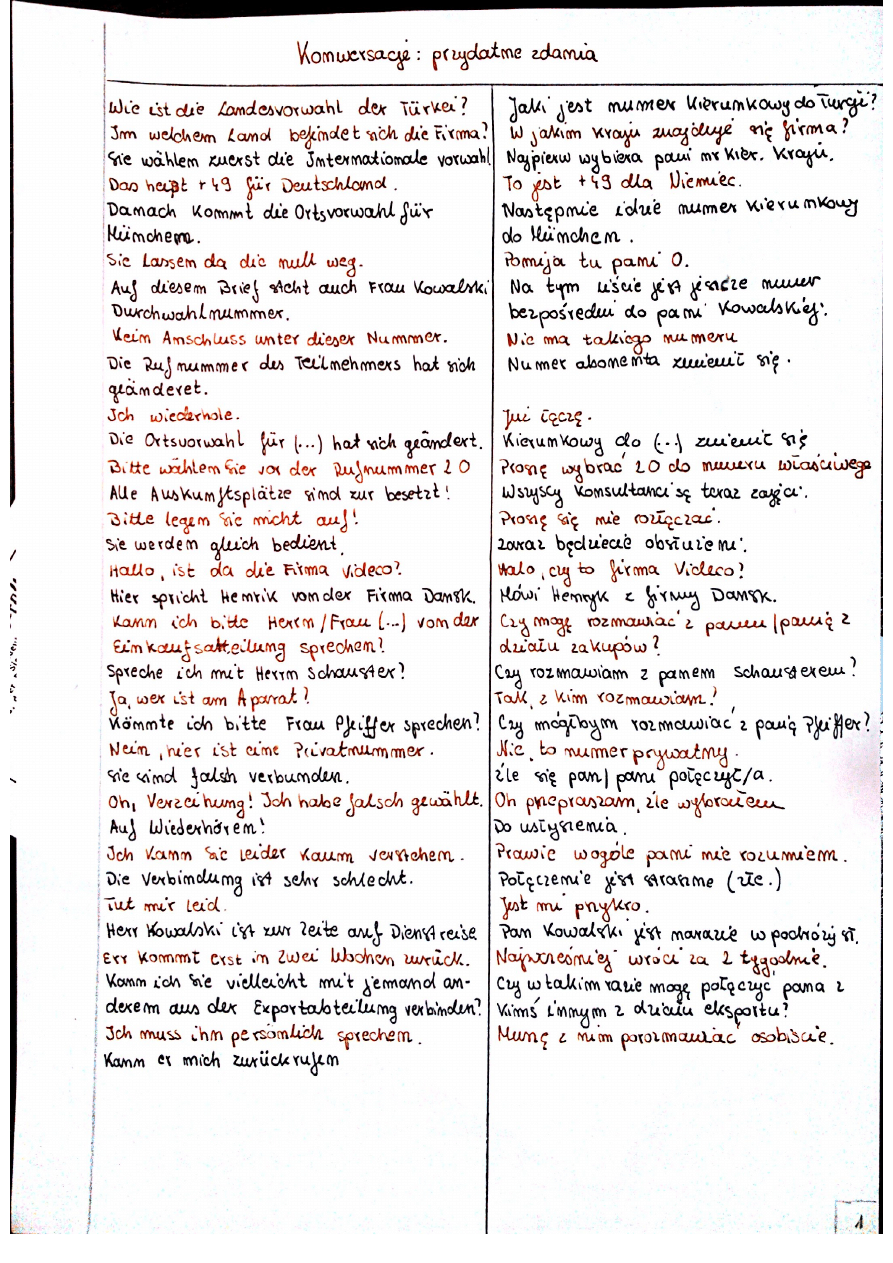 Konwersacje: przydatne zdania
Wie ist die Landesvorwahl der Türkei?
Im welchem Land befindet sich die Firma?
Sie wählen zuerst die Internationale vorwahl
Das heißt +49 für Deutschland.
Danach kommt die Ortsvorwahl für
München.
Sie Lassen da die null weg.
Auf diesem Brief steht auch Frau Kowalski
Durchwahlnummer.
Kein Anschluss unter dieser Nummer.
Die Rufnummer des Teilnehmers hat sich
geänderet.
Ich wiederhole.
Die Ortsvorwahl für (...) hat sich geändert.
Bitte wählen Sie vor der Rufnummer 20
Alle Auskunftsplätze sind zur besetzt!
Bitte legen Sie nicht auf!
Sie werden gleich bedient.
Hallo, ist da die Firma Video?
Hier spricht Henrik von der Firma Dansk.
Kann ich bitte Herrn/Frau (...) von der
Einkaufsatteilung sprechen?
Spreche ich mit Herrn Schauster?
Ja, wer ist am Aparat?
Könnte ich bitte Frau Pfeiffer sprechen?
Nein, hier ist eine Privatnummer.
Sie sind falsh verbunden.
Oh, Verzeihung! Ich habe falsch gewählt.
Auf Wiederhören!
Ich kann Sie leider kaum verstehen.
Die Verbindung ist sehr schlecht.
Tut mir leid.
Herr Kowalski ist zur Zeite auf Dienstreise
Err kommt erst in zwei Wochen zurück.
Kann ich Sie vielleicht mit jemand an-
derem aus der Exportabteilung verbinden?
Ich muss ihn persönlich sprechen.
Kann er mich zurückrufen
Jaki jest numer kierunkowy do Turcji?
W jakim kraju znajduje się firma?
Najpierw wybiera pani nr kier. kraju.
To jest +49 dla Niemiec.
Następnie idzie numer kierunkowy
do München.
Pomija tu pani 0.
Na tym liście jest jeszcze numer
bezpośredni do pani Kowalskiej.
Nie ma takiego numeru
Numer abonenta zmienił się.
Już łączę.
Kierunkowy do (...) zmienił się
Proszę wybrać 20 do numeru właściwego
Wszyscy konsultanci są teraz zajęci.
Proszę się nie rozłączać.
Zaraz będziecie obsłużeni.
Halo, czy to firma Video?
Mówi Henryk z firmy Dansk.
Czy mogę rozmawiać z panem/panią z
działu zakupów?
Czy rozmawiam z panem Schausterem?
Tak, z kim rozmawiam?
Czy mógłbym rozmawiać z panią Pfeiffer?
Nie, to numer prywatny.
Źle się pan/pani połączył/a.
Oh przepraszam, źle wybrałem
Do usłyszenia.
Prawie wogóle pani nie rozumiem.
Połączenie jest straszne (złe.)
Jest mi przykro.
Pan Kowalski jest narazie w podróży sł.
Najwcześniej wróci za 2 tygodnie.
Czy w takim razie mogę połączyć pana z
kimś innym z działu eksportu?
Muszę z nim porozmawiać osobiście.
1